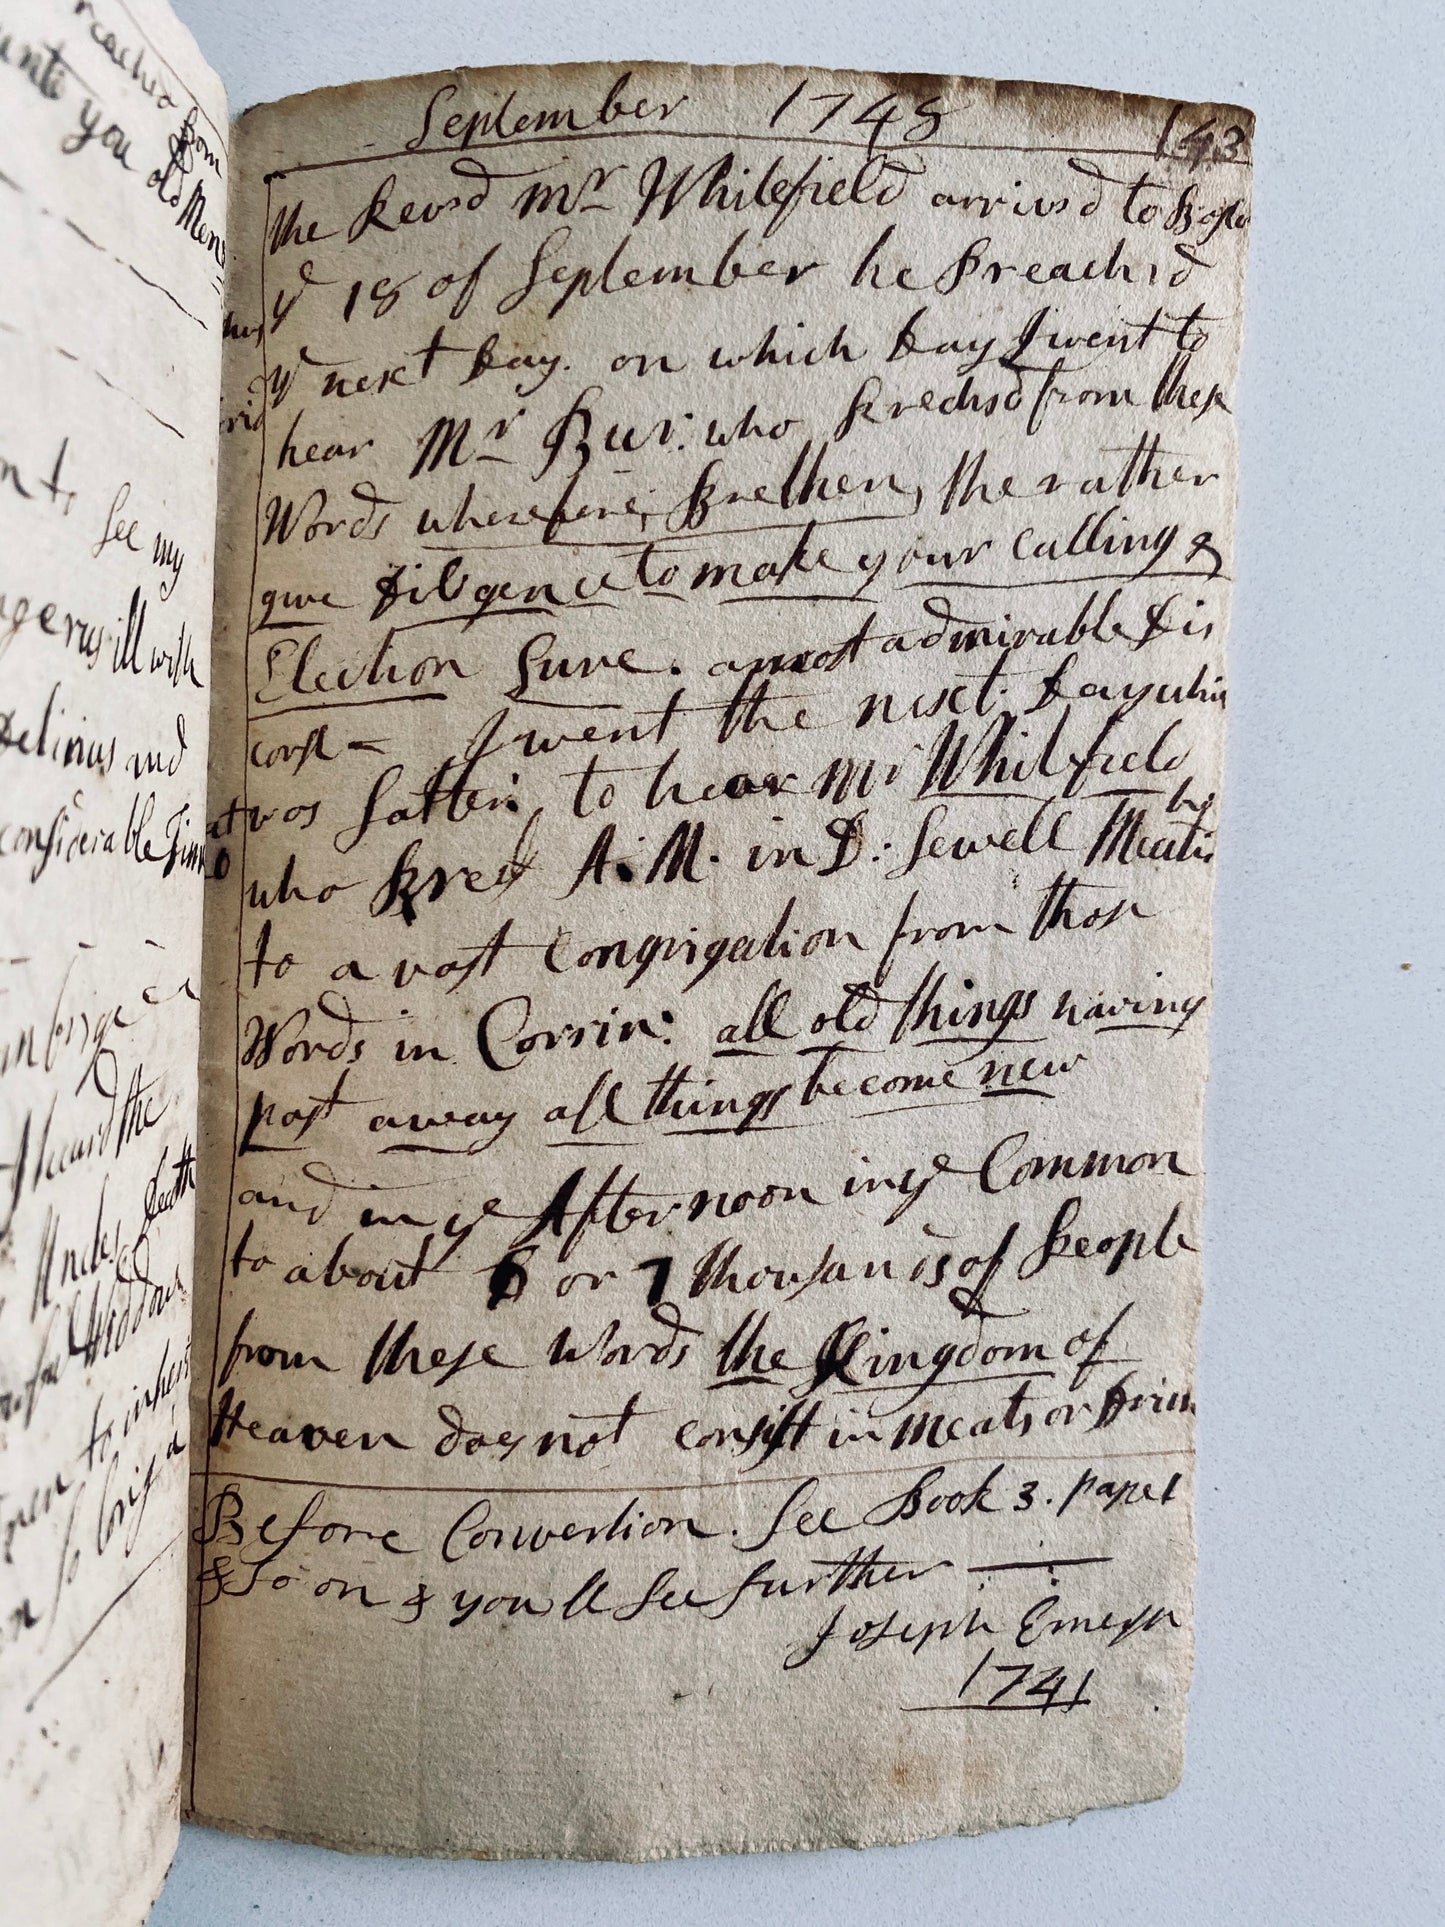 reached from
unto you old Mens
See my
gerus ill with
Delirius and
considerable Time
I heard the
Uncles Death
Widdow
to inherit
September 1748
143
the Revsd Mr Whitefield arrivsd to Bosto
ye 18 of September he Preachsd
ye next Day. on which Day I went to
hear Mr Bur: who Preachsd from these
Words wherefore, Brethen, the rather
give Diligence to make your calling &
Election Sure. a most admirable Dis
corse = I went the next Day which
was Satter: to hear Mr Whitefield
who Pred A:M. in D: Sewell Meeting
to a vast Congrigation from those
Words in Corrin: all old things having
past away all things become new
and in ye Afternoon in ye Common
to about 6 or 7 thousands of People
from these Words the Kingdom of
Heaven does not consist in Meats or Drin
Before Convertion. See Book 3. page 1
& So on & you'll See further
Joseph Emerson
1741